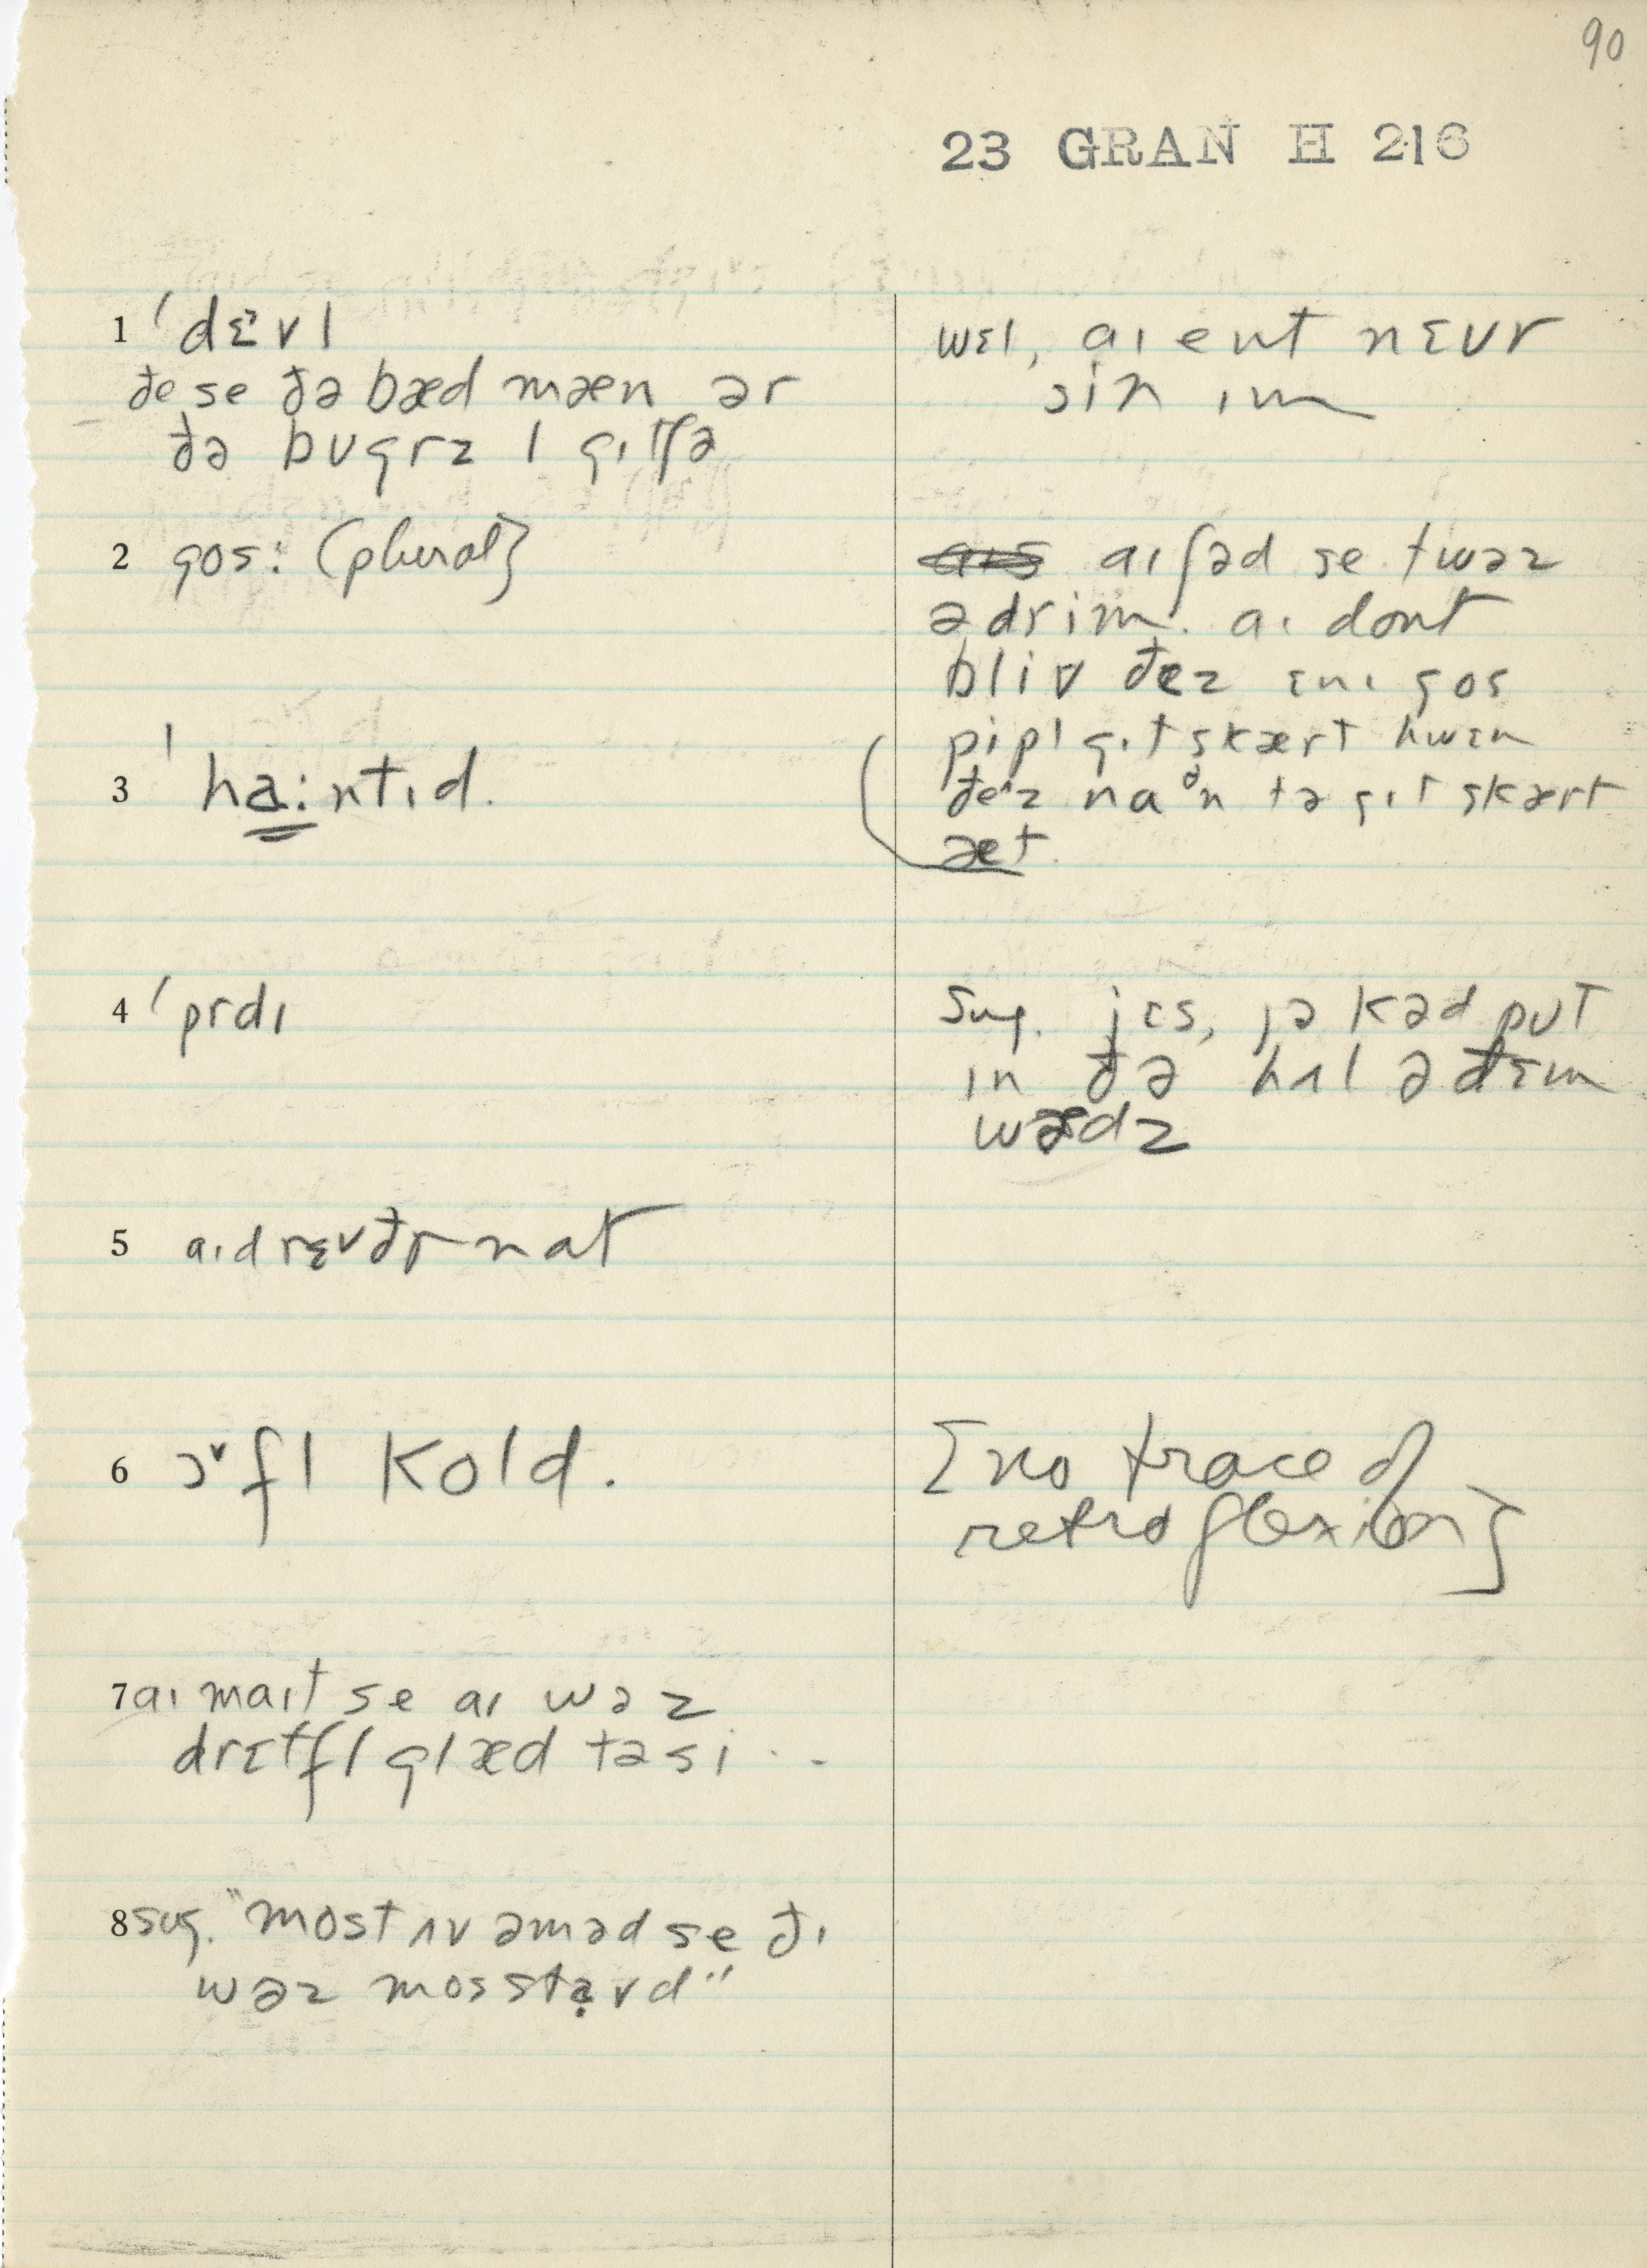 90
23 GRAN H 216
1 ˈdɛ˃vl
ðe se ðə bæd mæn ər
ðə bʊgrz l gɪtʃə
wɛl, aɪ ent nɛvr
sin ɪm
2 gos: (plural)
aɪ ʃəd se twəz
ə drim. aɪ dont
bliv ðez ɛnɪ gos
3 ˈha:ntɪd.
pipl gɪt skært hwɛn
ðez naᶿn tə gɪt skært
æt.
4 ˈprdɪ
Sug. jɛs, jə kəd put
ɪn ðə hʌl ə ðɛm
wədz
5 aɪd rɛvðr nat
6 ɔ˅fl kold.
[no trace of
retroflexion]
7 aɪ maɪt se aɪ wəz
drɛtfl glæd tə si . . -
8 sug. "most ʌv əm əd se ðɪ
wəz mos starvd"